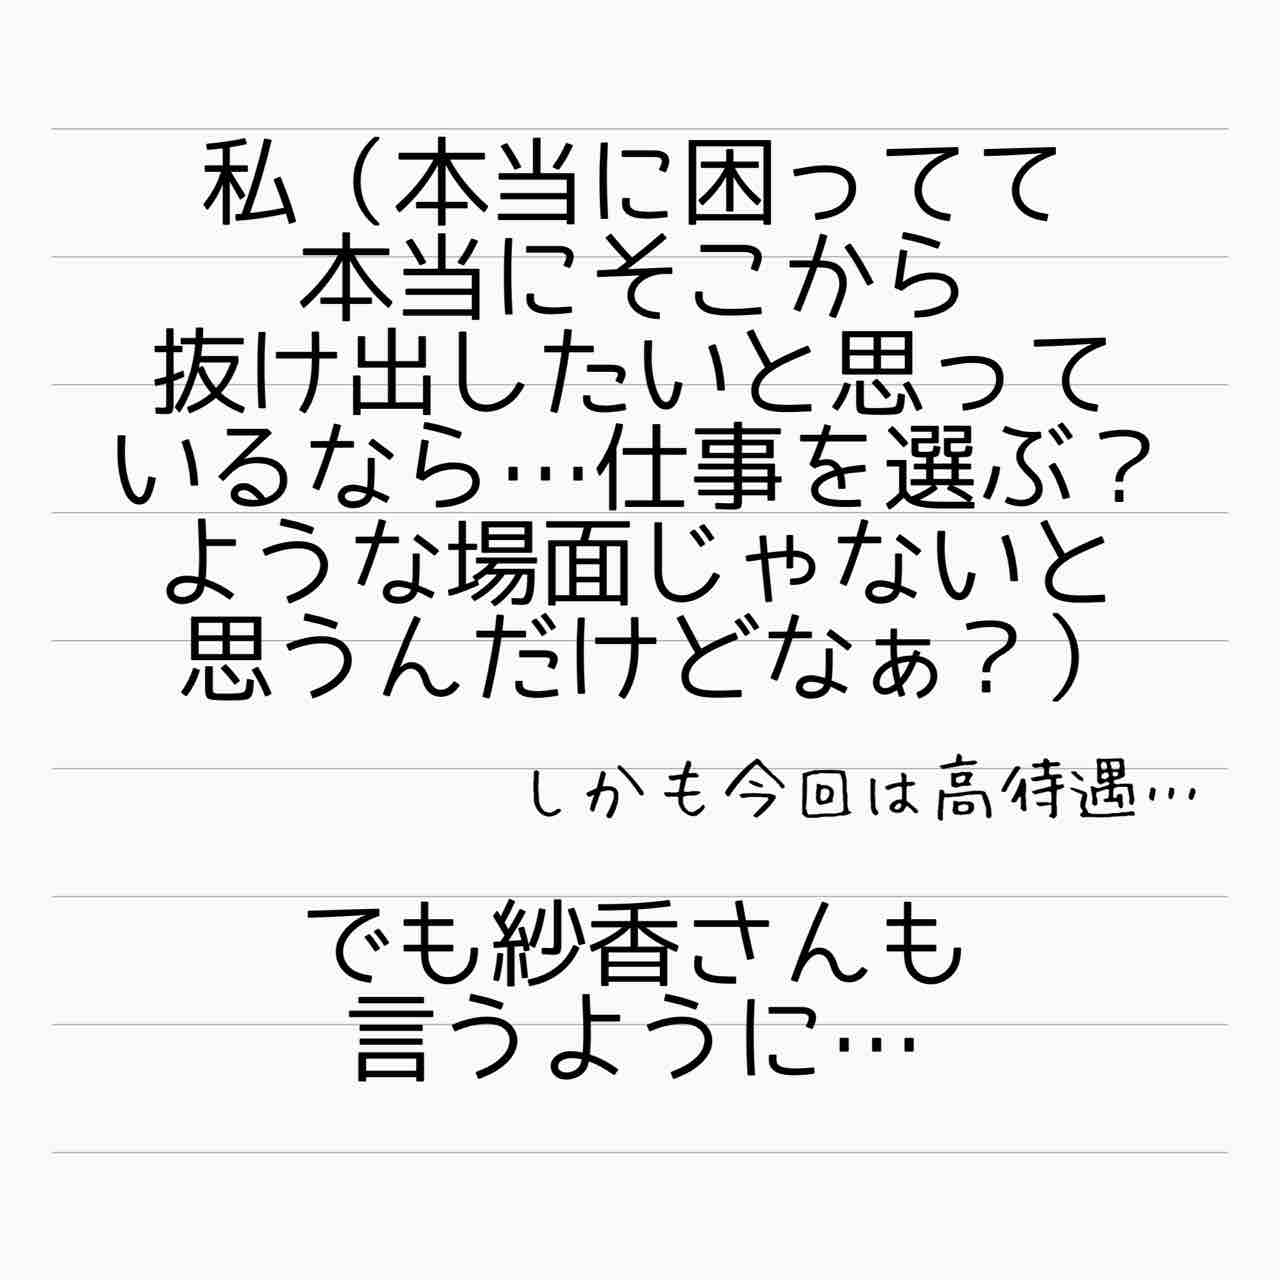 私（本当に困ってて
本当にそこから
抜け出したいと思って
いるなら…仕事を選ぶ？
ような場面じゃないと
思うんだけどなぁ？）
しかも今回は高待遇…
でも紗香さんも
言うように…